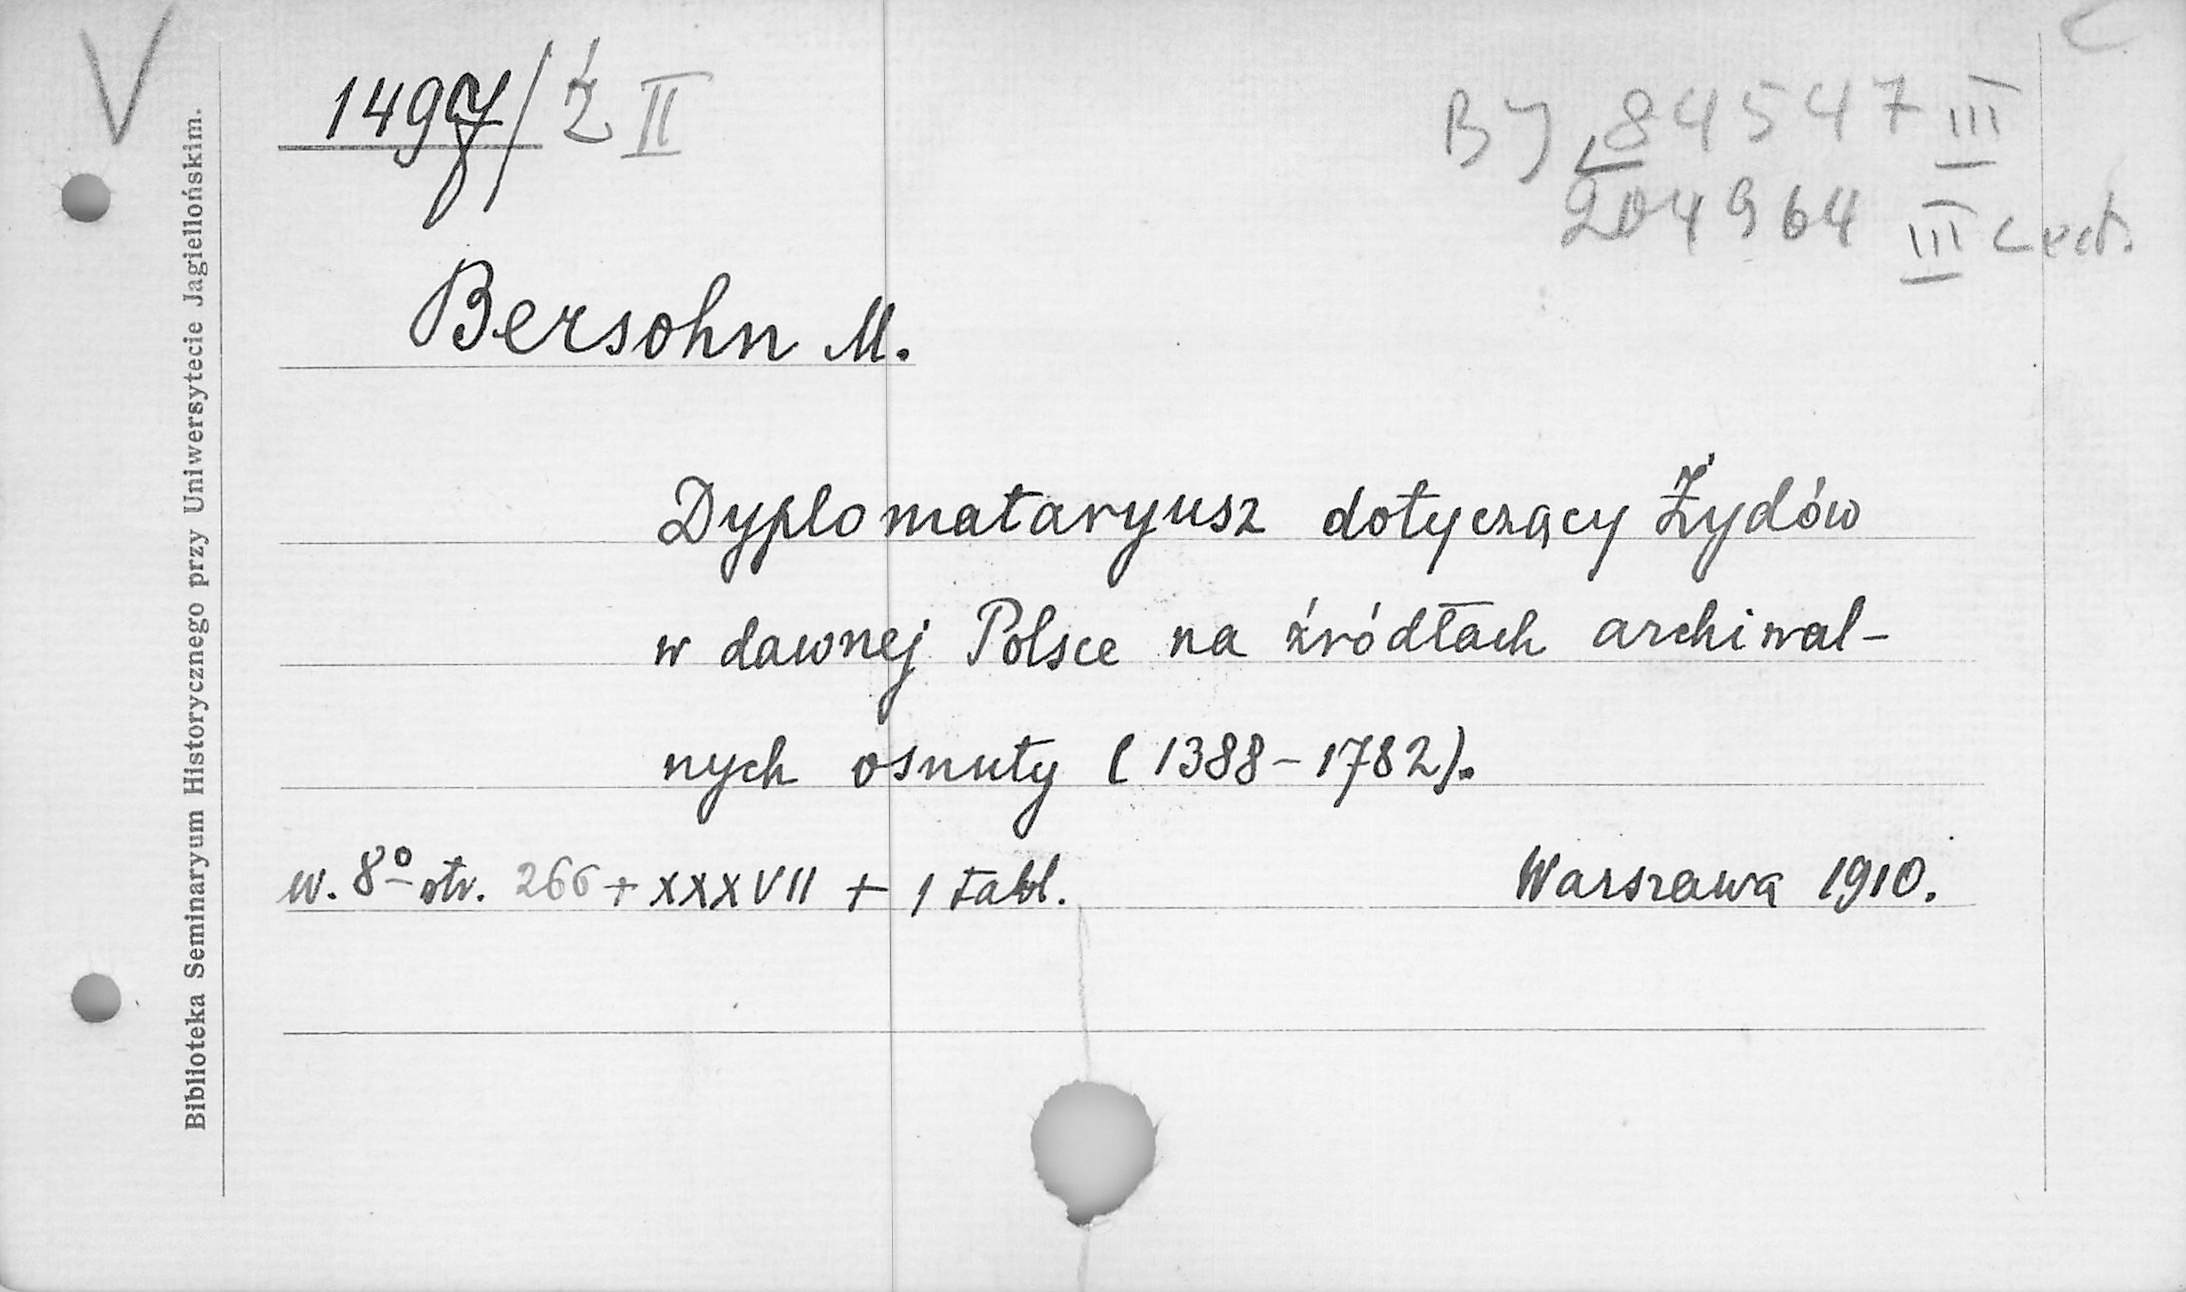 V
1497/Ż II
BJ 84547 III
204964 III
Bersohn M.
Dyplomataryusz dotyczący Żydów
w dawnej Polsce na źródłach archiwal-
nych osnuty (1388-1782).
w. 8º str. 266 + XXXVII + 1 tabl. Warszawa 1910.
Biblioteka Seminaryum Historycznego przy Uniwersytecie Jagiellońskim.